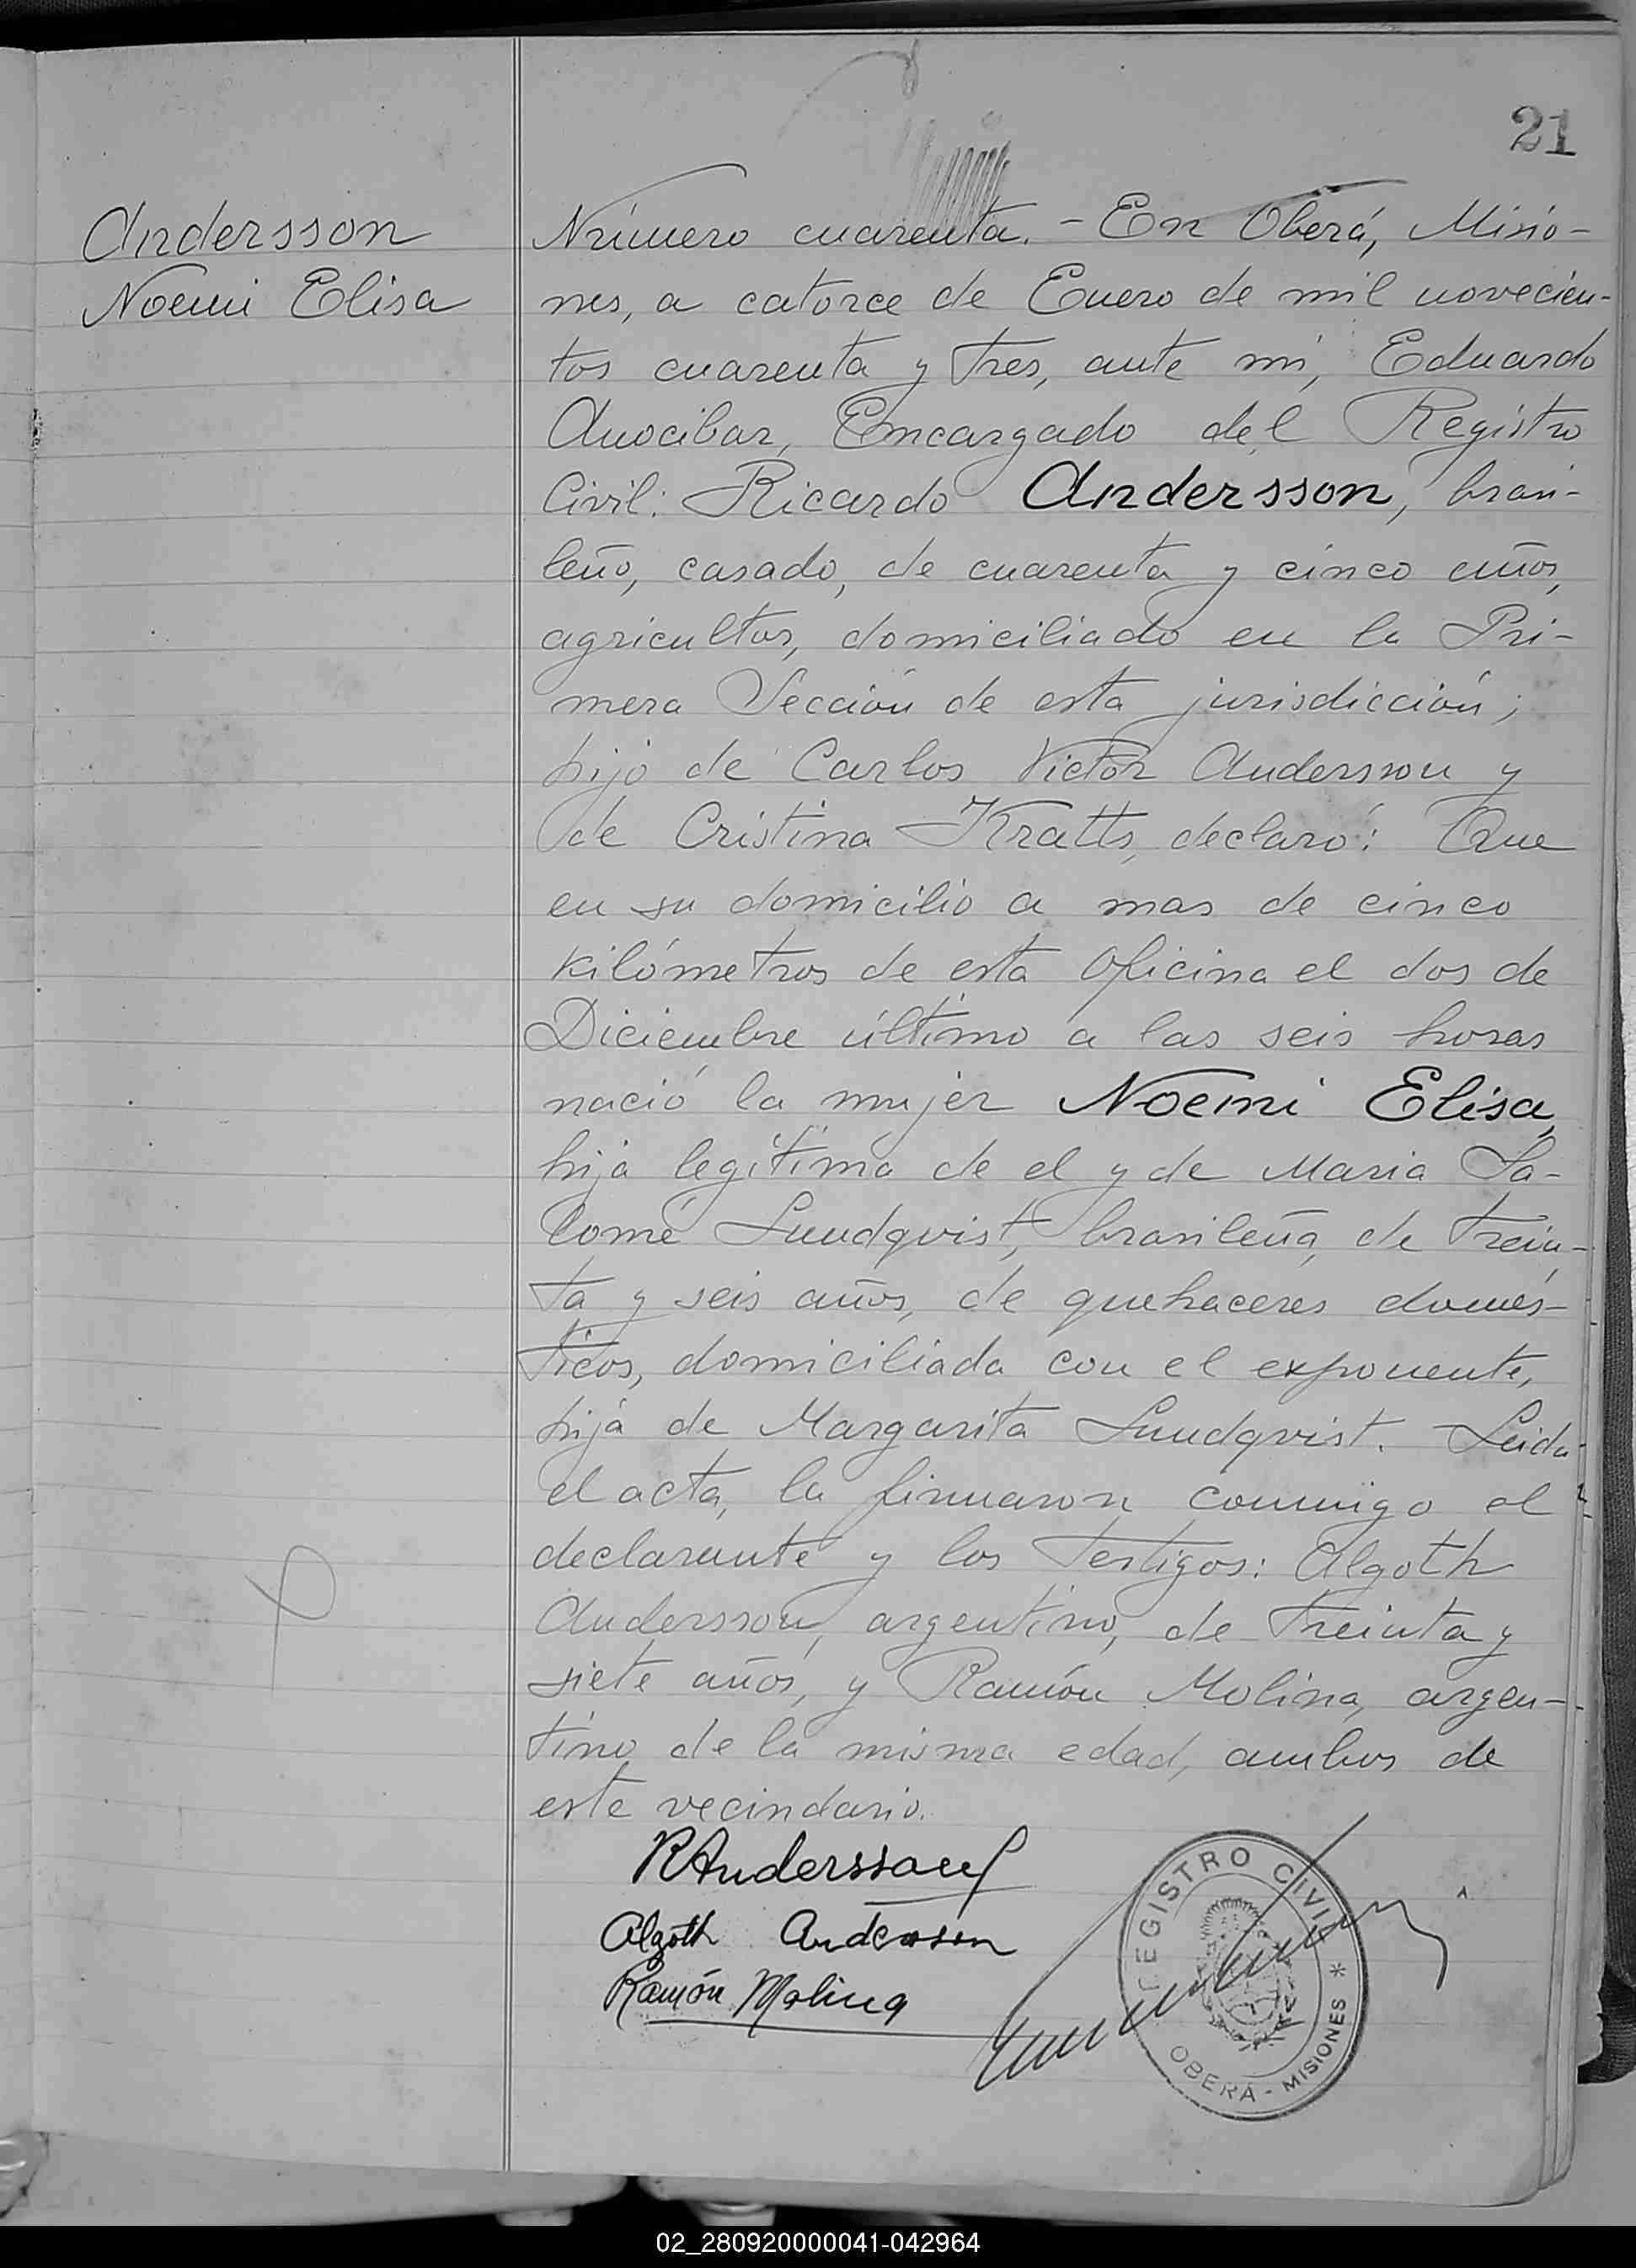 21
Andersson
Noemi Elisa
Número cuarenta. - En Oberá, Misio-
nes, a catorce de Enero de mil novecien-
tos cuarenta y tres, ante mi, Eduardo
Anocibar, Encargado del Registro
Civil: Ricardo Andersson, brasi-
leño, casado, de cuarenta y cinco años,
agricultor, domiciliado en la Pri-
mera Sección de esta jurisdicción;
hijo de Carlos Victor Andersson y
de Cristina Kratts, declaró: Que
en su domicilio a mas de cinco
kilómetros de esta Oficina el dos de
Diciembre último a las seis horas
nació la mujer Noemi Elisa,
hija legítima de el y de Maria Sa-
lomé Lundqvist, brasileña, de trein-
ta y seis años, de quehaceres domés-
ticos, domiciliada con el exponente,
hija de Margarita Lundqvist. Leida
el acta, la firmaron conmigo el
declarante y los testigos: Algoth
Andersson, argentino, de treinta y
siete años, y Ramón Molina, argen-
tino de la misma edad, ambos de
este vecindario.
RAndersson
Algoth Andersson
Ramón Molina
REGISTRO CIVIL
OBERÁ - MISIONES *
02_280920000041-042964